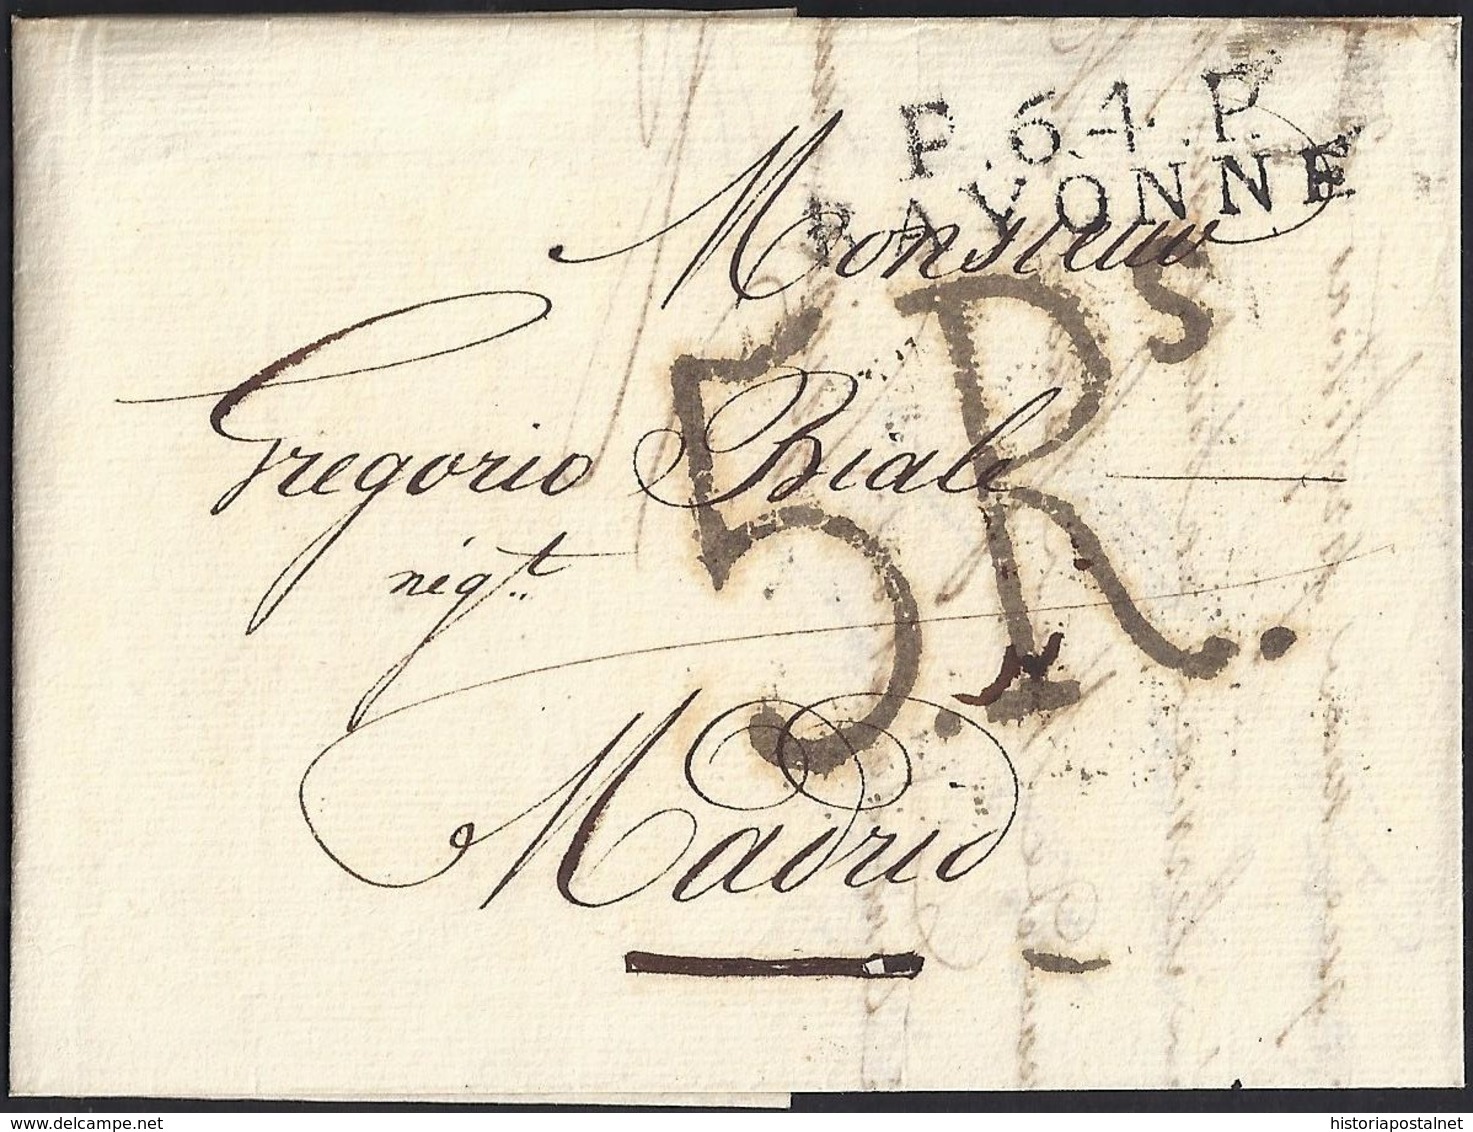 P.64.P.
BAYONNE
Monsieur
5.Rs.
Gregorio Biale
négt
Madrid
delcampe.net
historiapostalnet